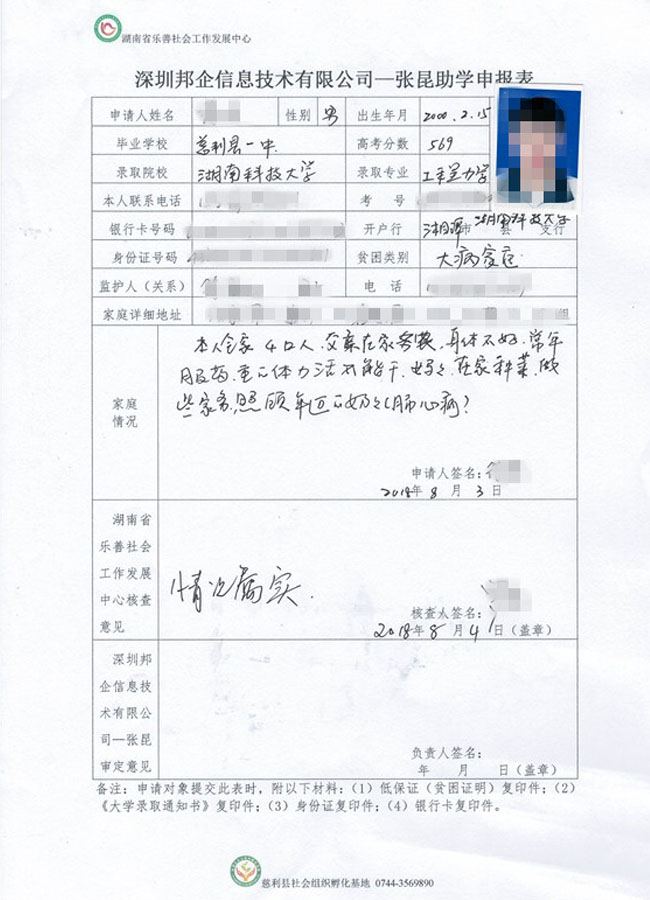 湖南省乐善社会工作发展中心
深圳邦企信息技术有限公司—张昆助学申报表
申请人姓名 性别 男 出生年月 2000.2.15
毕业学校 慈利县一中 高考分数 569
录取院校 湖南科技大学 录取专业 工程力学
本人联系电话 考 号
银行卡号码 开户行 湘潭市 湖南科技大学 县 支行
身份证号码 贫困类别 大病家庭
监护人（关系） 电 话
家庭详细地址 组
家庭
情况
本人全家4口人,父亲在家务农,身体不好,常年
服药,重体力活不能干,妈妈在家种菜,做
些家务,照顾年迈的奶奶(肺心病)
申请人签名：
2018年 8 月 3 日
湖南省
乐善社会
工作发展
中心核查
意见
情况属实.
核查人签名：
2018年 8 月 4 日（盖章）
深圳邦
企信息技
术有限公
司—张昆
审定意见
负责人签名：
年 月 日（盖章）
备注：申请对象提交此表时，附以下材料：（1）低保证（贫困证明）复印件；（2）
《大学录取通知书》复印件；（3）身份证复印件；（4）银行卡复印件。
慈利县社会组织孵化基地 0744-3569890